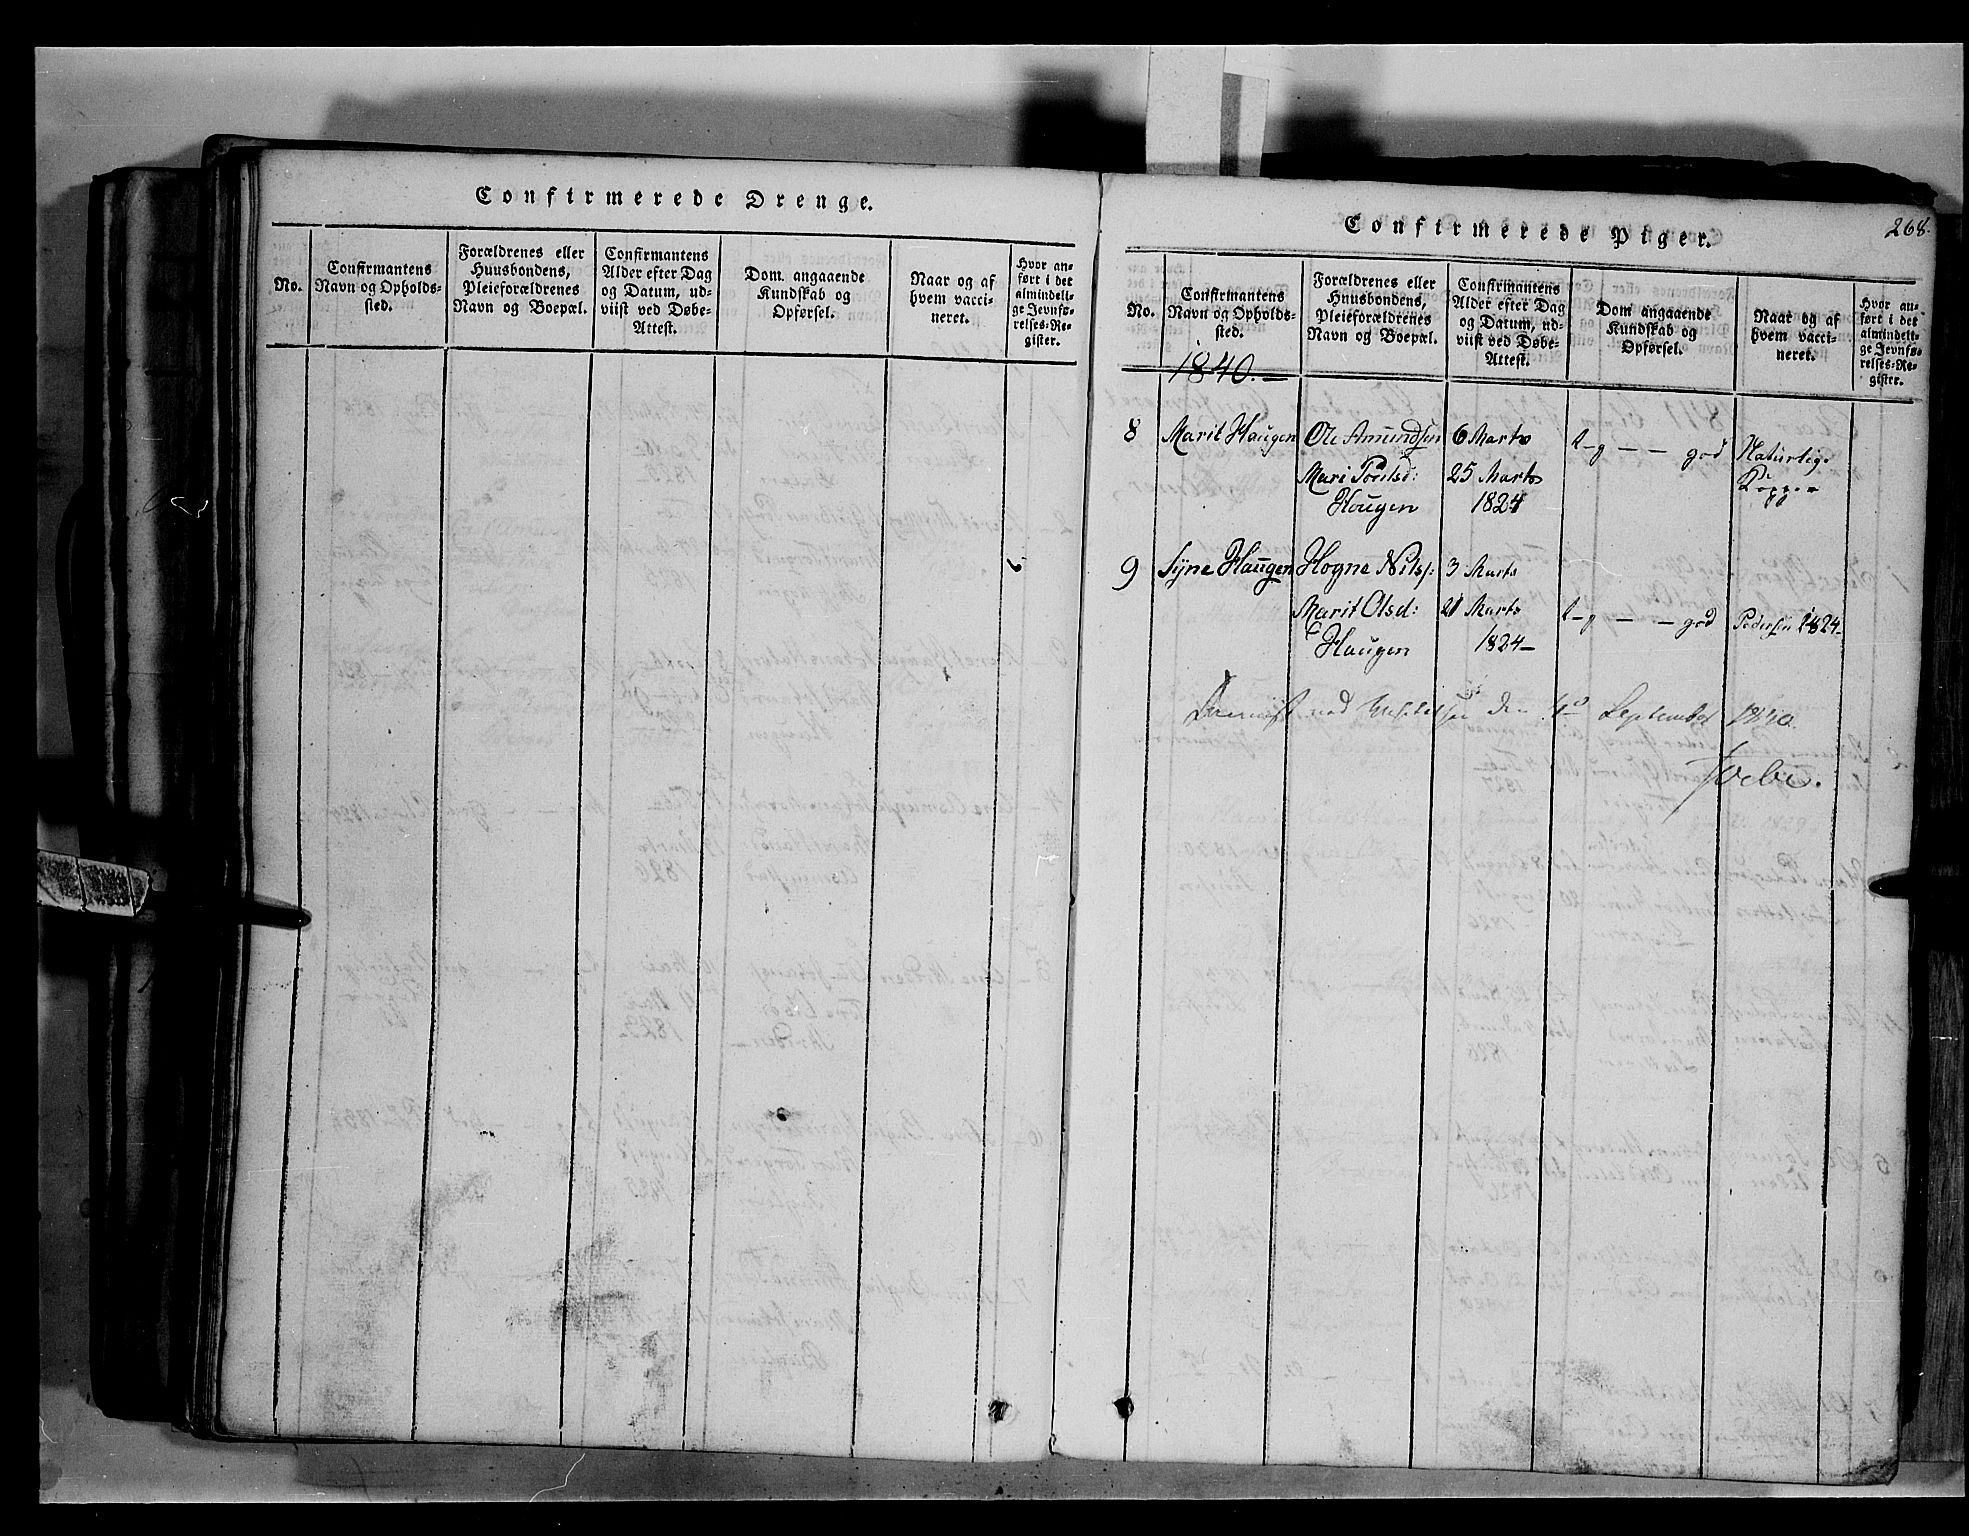 Confirmerede Drenge.
No.
Confirmantens
Navn og Opholds-
sted.
Forældrenes eller
Huusbondens,
Pleieforældrenes
Navn og Boepæl.
Confirmantens
Alder efter Dag
og Datum, ud-
viist ved Døbe-
Attest.
Dom angaaende
Kundskab og
Opførsel.
Naar og af
hvem vacci-
neret.
Hvor an-
ført i det
almindeli-
ge Jevnfø-
relses-Re-
gister.
268.
Confirmerede Piger.
No.
Confirmantens
Navn og Opholds-
sted.
Forældrenes eller
Huusbondens,
Pleieforældrenes
Navn og Boepæl.
Confirmantens
Alder efter Dag
og Datum, ud-
viist ved Døbe-
Attest.
Dom angaaende
Kundskab og
Opførsel.
Naar og af
hvem vacci-
neret.
Hvor an-
ført i det
almindeli-
ge Jevnfø-
relses-Re-
gister.
1840.—
8 Marit Haugen Ole Amundsen 6 Marts t-g - - god Naturlige
Mari 25 Marts Kopper
Hougen 1824
9 Syne Haugen Hogne Nilss: 3 Marts
Marit Olsd: 21 Marts t-g - - god Pedersen 1824-
Haugen 1824-
ved den September 1840.